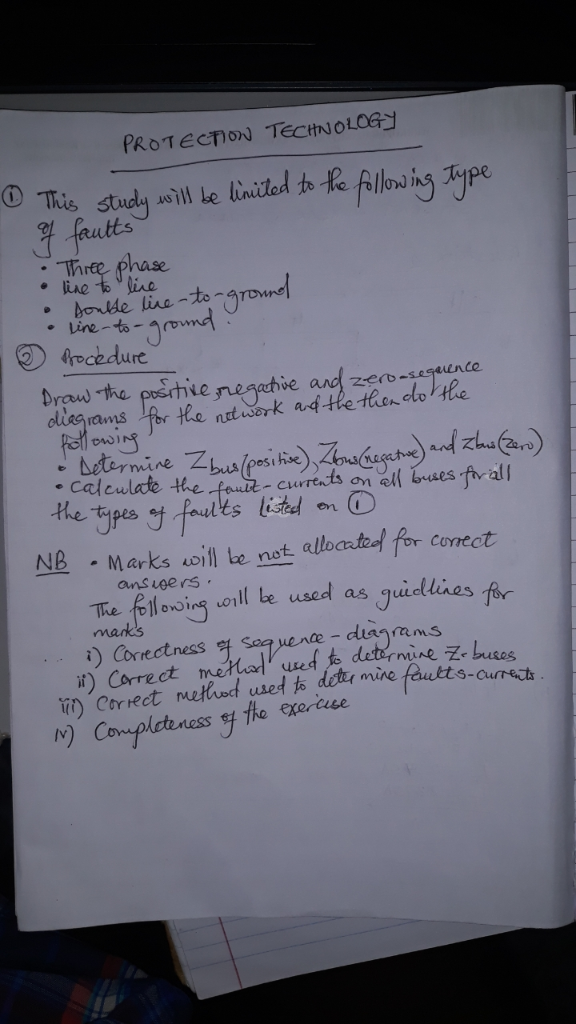 PROTECTION TECHNOLOGY
① This study will be limited to the following type
of faults
• Three phase
• line to line
• Double line-to-ground
• Line-to-ground.
② Procedure
Draw the positive, negative and zero-sequence
diagrams for the network and the then do the
following
• Determine Zbus(positive), Zbus(negative) and Zbus(zero)
• Calculate the fault-currents on all buses for all
the types of faults listed on ①
NB • Marks will be not allocated for correct
answers.
The following will be used as guidlines for
marks
i) Correctness of sequence-diagrams
ii) Correct method used to determine Z-buses
iii) Correct method used to determine faults-currents.
iv) Completeness of the exercise